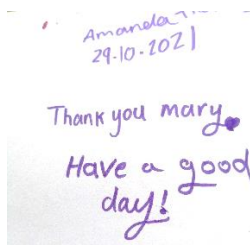 Amanda
29.10.2021
Thank you mary
Have a good
day!